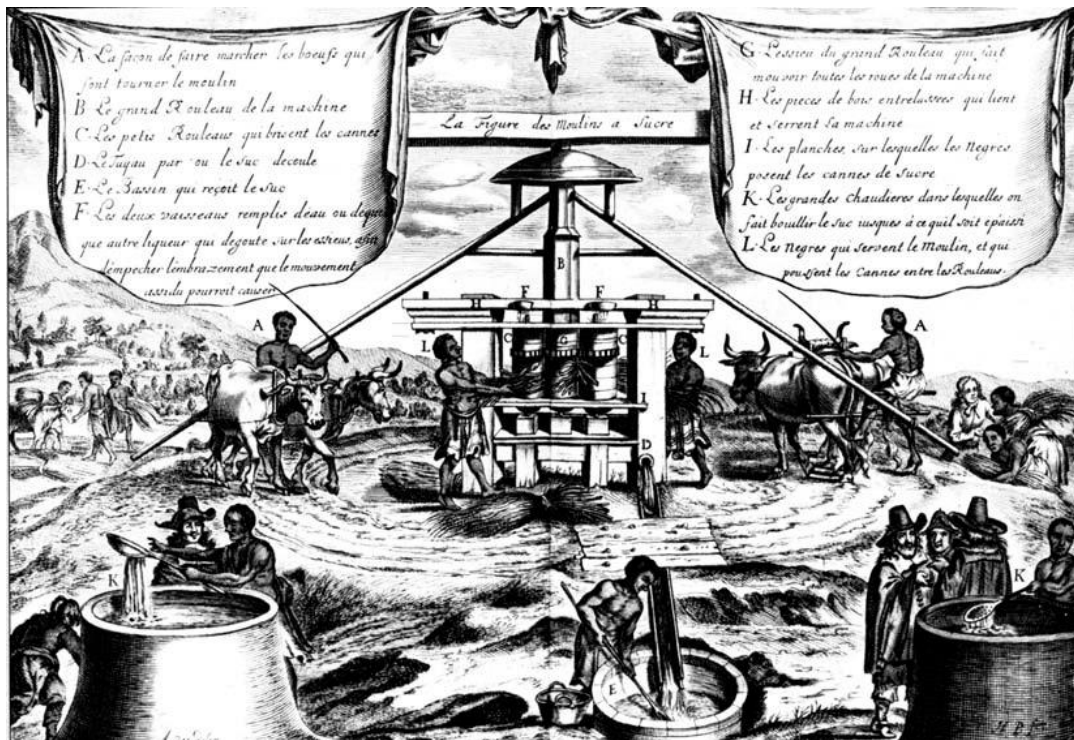 A. La façon de faire marcher les boeufs qui
font tourner le moulin
B Le grand Rouleau de la machine
C. Les petis Rouleaus qui brisent les cannes
D. Le Tuyau par ou le suc decoule
E. Le Bassin qui reçoit le suc
F. Les deux vaisseaus remplis d'eau ou de quel
que autre liqueur qui degoute sur les essieus, afin
d'empecher l'embrazement que le mouvement
assidu pourroit causer
La Figure des Moulins a Sucre
G. L'essieu du grand Rouleau qui fait
mouvoir toutes les roues de la machine
H. Les pieces de bois entrelassées qui lient
et serrent la machine
I. Les planches, sur lesquelles les Negres
posent les cannes de sucre
K. Les grandes chaudieres dans lesquelles on
fait bouillir le suc iusques à ce qu'il soit epaissi
L. Les Negres qui servent le moulin, et qui
poussent les Cannes entre les Rouleaus.
B
F F
H H
A A
L C G C L
I
D
K K
E